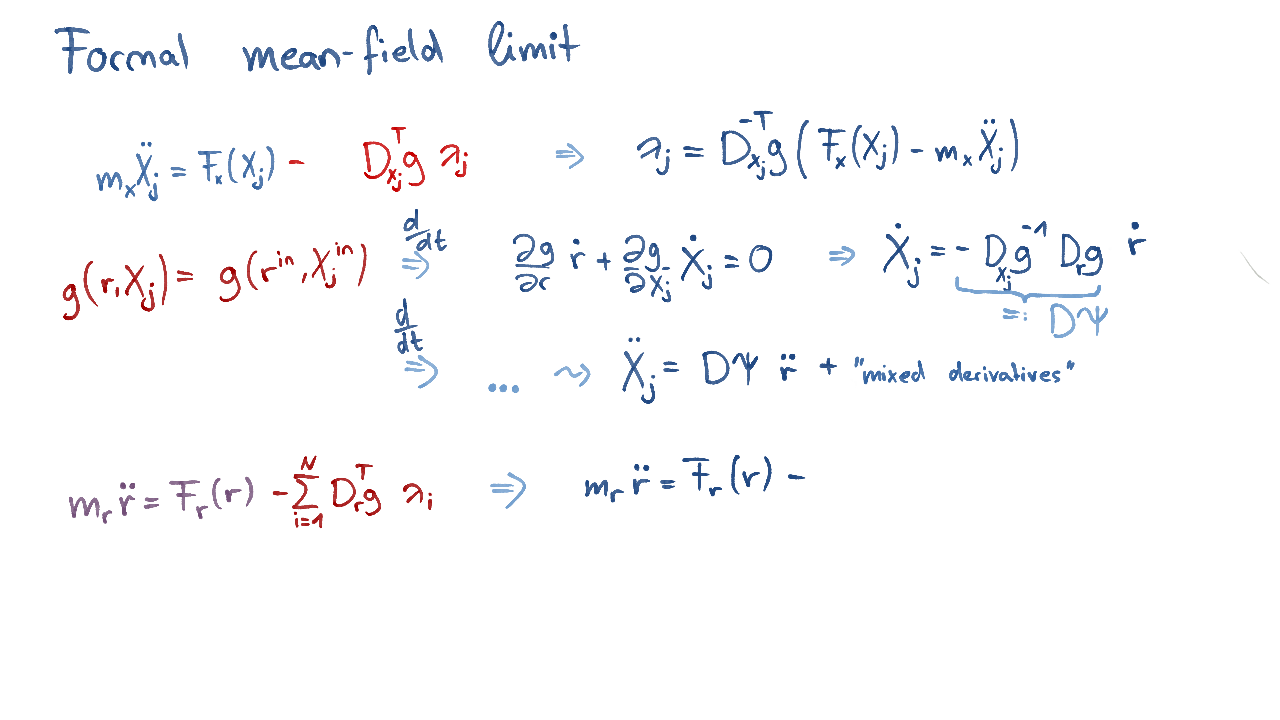 Formal mean-field limit
m_x Ẍ_j = F_x(X_j) - D_{x_j}^T g λ_j ⇒ λ_j = D_{x_j}^{-T} g (F_x(X_j) - m_x Ẍ_j)
g(r, X_j) = g(r^{in}, X_j^{in}) d/dt ⇒ ∂g/∂r ṙ + ∂g/∂X_j Ẋ_j = 0 ⇒ Ẋ_j = - D_{x_j} g^{-1} D_r g ṙ
=: DΨ
d/dt ⇒ ... ⇝ Ẍ_j = DΨ r̈ + "mixed derivatives"
m_r r̈ = F_r(r) - Σ_{i=1}^N D_r^T g λ_i ⇒ m_r r̈ = F_r(r) -